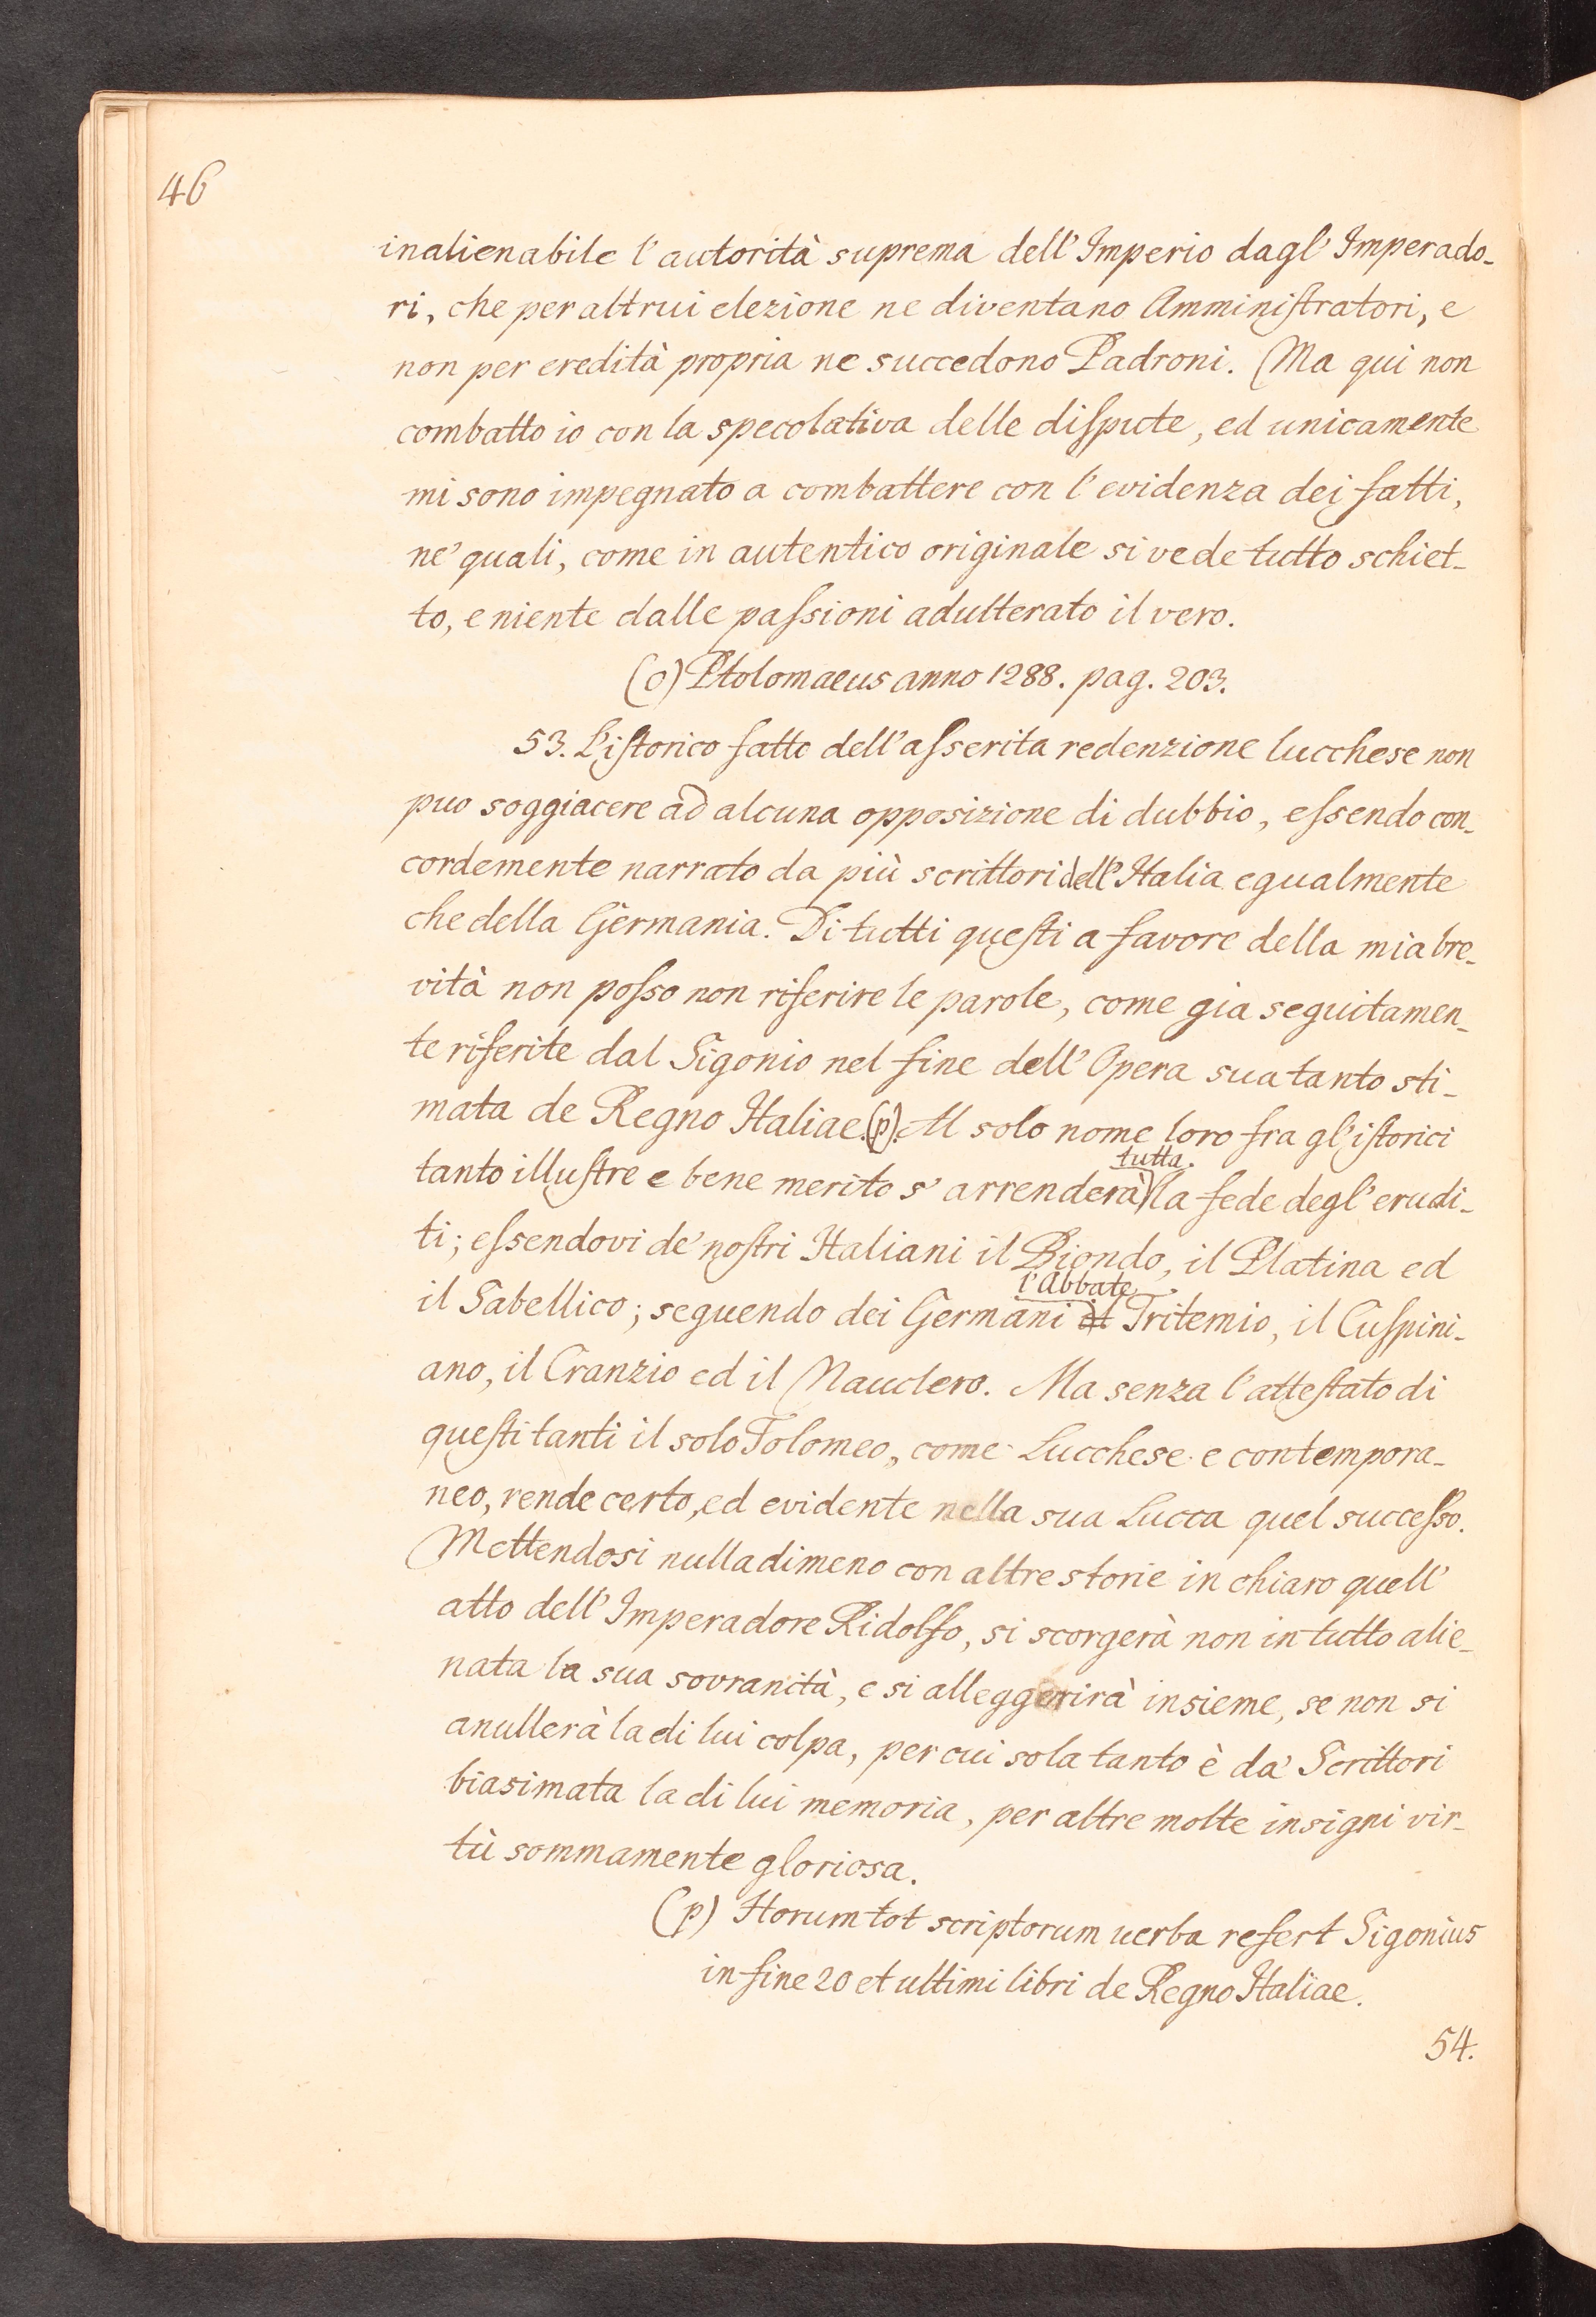 46
inalienabile l'autorità suprema dell'Imperio dagl'Imperado-
ri, che per altrui elezione ne diventano Amministratori, e
non per eredità propria ne succedono Padroni. Ma qui non
combatto io con la specolativa delle dispute, ed unicamente
mi sono impegnato a combattere con l'evidenza dei fatti,
ne' quali, come in autentico originale si vede tutto schiet-
to, e niente dalle passioni adulterato il vero.
(o) Ptolomaeus anno 1288. pag. 203.
53. L'istorico fatto dell'asserita redenzione lucchese non
puo soggiacere ad alcuna opposizione di dubbio, essendo con-
cordemente narrato da più scrittori dell'Italia egualmente
che della Germania. Di tutti questi a favore della mia bre-
vità non posso non riferire le parole, come gia seguitamen-
te riferite dal Sigonio nel fine dell'Opera sua tanto sti-
mata de Regno Italiae.(p). Al solo nome loro fra gl'istorici
tutta.
tanto illustre e bene merito s'arrenderà la fede degl'erudi-
ti; essendovi de' nostri Italiani il Biondo, il Platina ed
l'Abbate
il Sabellico; seguendo dei Germani il Tritemio, il Cuspini-
ano, il Cranzio ed il Nauclero. Ma senza l'attestato di
questi tanti il solo Tolomeo, come Lucchese e contempora-
neo, rende certo, ed evidente nella sua Lucca quel successo.
Mettendosi nulladimeno con altre storie in chiaro quell'
atto dell'Imperadore Ridolfo, si scorgerà non in tutto alie-
nata la sua sovranità, e si alleggerirà insieme, se non si
anullerà la di lui colpa, per cui sola tanto è da' Scrittori
biasimata la di lui memoria, per altre molte insigni vir-
tù sommamente gloriosa.
(p) Horum tot scriptorum uerba refert Sigonius
in fine 20 et ultimi libri de Regno Italiae.
54.